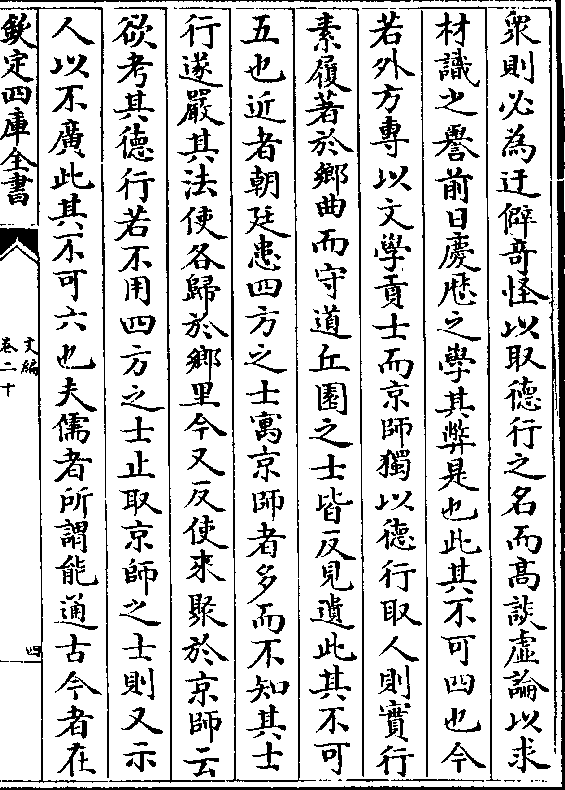 衆則必為迂僻奇怪以取德行之名而髙談虛論以求
材識之譽前日慶厯之學其弊是也此其不可四也今
若外方專以文學貢士而京師獨以德行取人則實行
素履著於鄉曲而守道丘園之士皆反見遺此其不可
五也近者朝廷患四方之士寓京師者多而不知其士
行遂嚴其法使各歸於鄉里今又反使來聚於京師云
欲考其德行若不用四方之士止取京師之士則又示
人以不廣此其不可六也夫儒者所謂能通古今者在
欽定四庫全書
文編
卷二十
四